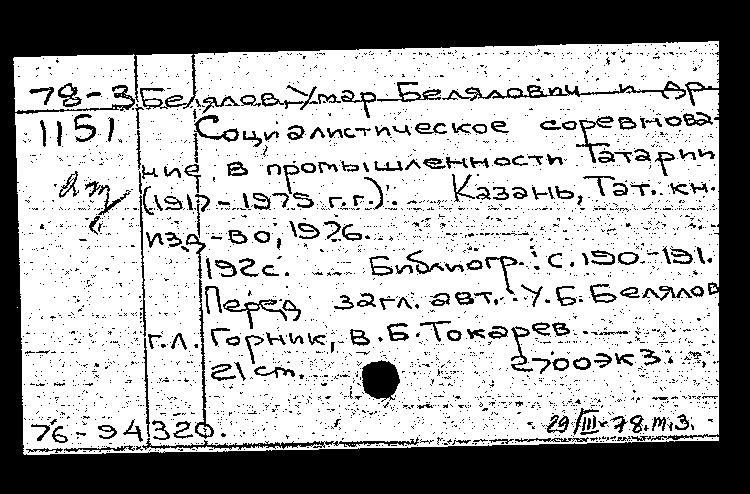 78-3 Белялов, Умар Белялович и др.
1151 Социалистическое соревнова-
ние в промышленности Татарии
(1917-1975 г.г.). — Казань, Тат. кн.
изд-во, 1976.
192 с. — Библиогр.: с. 190-191.
Перед загл. авт.: У.Б. Белялов
Г.Л. Горник, В.Б. Токарев. —
21 ст. 2700 экз.
76-94320. 29/III-78. т.3.